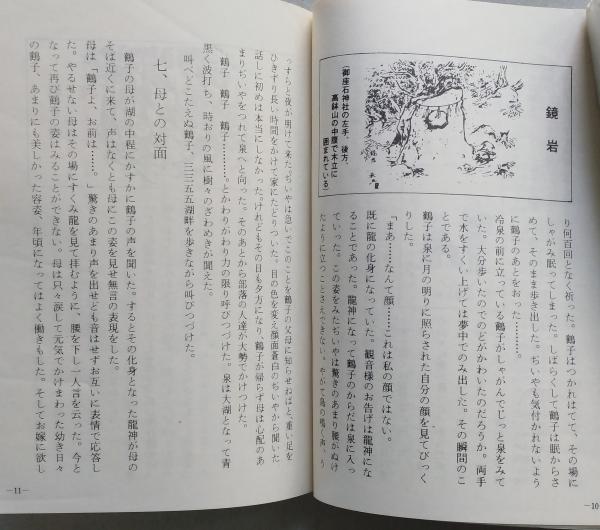 鏡岩
（御座石神社の左手、後方、
高鉢山の中腹で木立に
囲まれている）
り何百回となく祈った。鶴子はつかれはてて、その場に
しゃがみ眠ってしまった。しばらくして鶴子は眠からさ
めて、そのまま歩き出した。ぢいやも気付かれないよう
に鶴子のあとをおった…………。
冷泉の前に立っている鶴子がしゃがんでじっと泉をみて
いた。大分歩いたのでのどがかわいたのだろうか。両手
で水をすくい上げては夢中でのみ出した。その瞬間のこ
とである。
鶴子は泉に月の明りに照らされた自分の顔を見てびっく
りした。
「まあ……なんて顔……これは私の顔ではない。
既に龍の化身になっていた。観音様のお告げは龍神にな
ることであった。龍神になって鶴子のからだは泉に入っ
ていった。この姿をみたぢいやは驚きのあまり腰がぬけ
たように立つことさえできない。やがて鳥の鳴く声、う
—10
っすらと夜が明けて来た。ぢいやは急いでこのことを鶴子の父母に知らせねばと、重い足を
ひきずり長い時間をかけて家にたどりついた。目の色を変え顔面蒼白のぢいやから聞いた
話しに初めは本当にしなかった。けれどもその日も夕方になり、鶴子が帰らず母は心配のあ
まりぢいやをつれて泉へと向った。そのあとから部落の人達が大勢でかけつけた。
鶴子　鶴子　鶴子………とかわりがわり力の限り呼びつづけた。泉は大湖となって青
黒く波打ち、時おりの風に樹々のざわめきが聞えた。
叫べどこたえぬ鶴子、三三五五湖畔を歩きながら叫びつづけた。
七、母との対面
鶴子の母が湖の中程にかすかに鶴子の声を聞いた。するとその化身となった龍神が母の
そば近くに来て、声はなくとも母にこの姿を見せ無言の表現をした。
母は「鶴子よ、お前は……。」驚きのあまり声を出せども音はせずお互いに表情で応答し
た。やるせない母はその場にすくみ龍を見て拝むように、腰を下し一人言を云った。今と
なって再び鶴子の姿はみることができない。母は只々涙して元気でかけまわった幼き日々
の鶴子、あまりにも美しかった容姿、年頃になってはよく働きもした。そしてお嫁に欲し
—11—